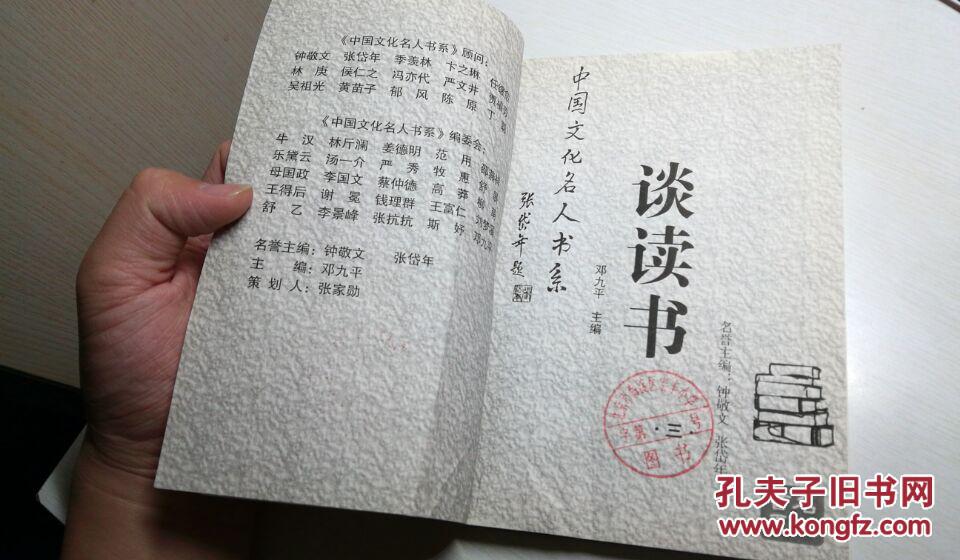 《中国文化名人书系》顾问：
钟敬文 张岱年 季羡林 卞之琳
林庚 侯仁之 冯亦代 严文井
吴祖光 黄苗子 郁风 陈原 丁
《中国文化名人书系》编委会：
牛汉 林斤澜 姜德明 范用
乐黛云 汤一介 严秀 牧惠 舒
母国政 李国文 蔡仲德 高莽 柳
王得后 谢冕 钱理群 王富仁 刘梦溪
舒乙 李景峰 张抗抗 斯妤 邓九平
名誉主编：钟敬文 张岱年
主编：邓九平
策划人：张家勋
中国文化名人书系
张岱年题
谈读书
邓九平 主编
名誉主编：钟敬文 张岱年
字第·三·号
图书
孔夫子旧书网
www.kongfz.com